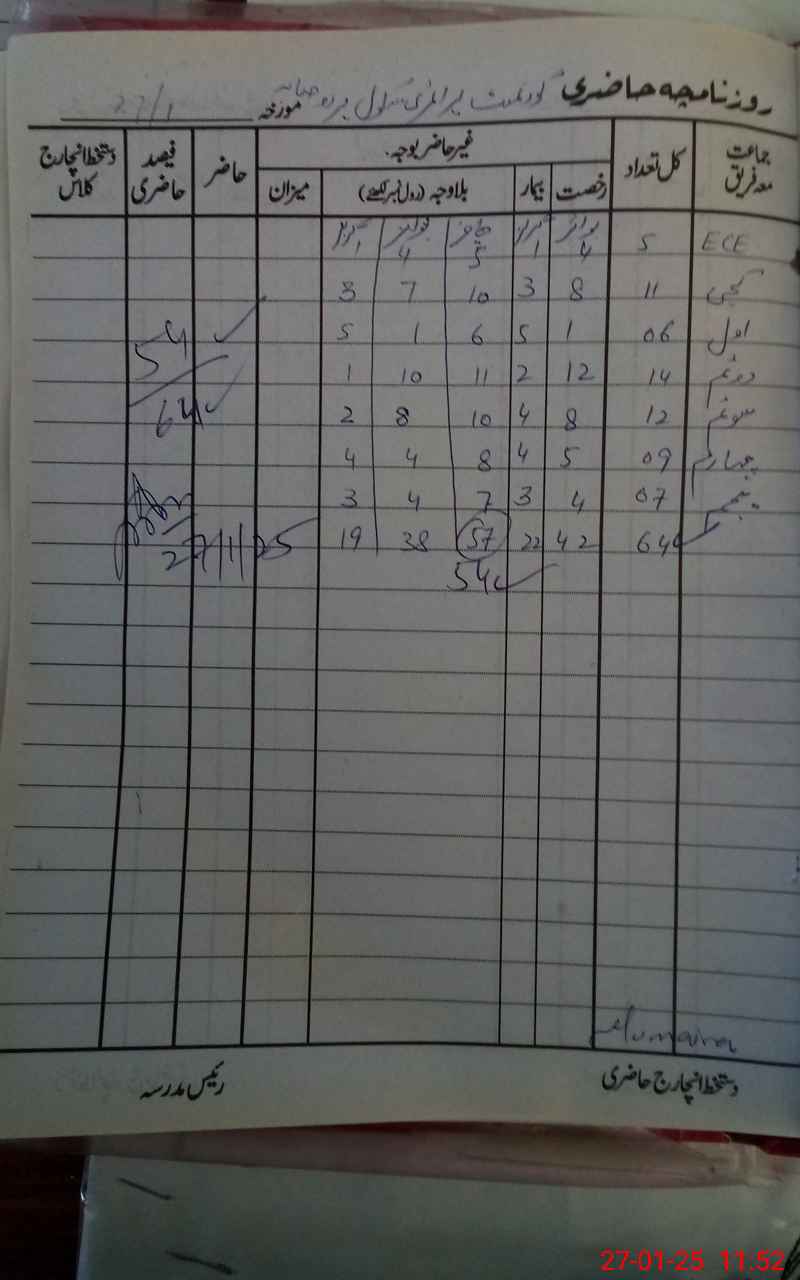 روزنامچہ حاضری گورنمنٹ پرائمری سکول مورخہ 27/1
جماعت معہ فریق کل تعداد غیر حاضر بوجہ۔ حاضر فیصد حاضری دستخط انچارج کلاس
رخصت بیمار بلاوجہ (رول نمبر لکھئے) میزان
بوائز گرلز حاضر بوائز گرلز
ECE 5 4 1 5 4 1
کچی 11 8 3 10 7 3
اول 06 1 5 6 1 5
دوئم 14 12 2 11 10 1
سوئم 12 8 4 10 8 2
چہارم 09 5 4 8 4 4
پنجم 07 4 3 7 4 3
64 42 22 57 38 19
54
54
64
27/1/25
Humaira
دستخط انچارج حاضری رئیس مدرسہ
27-01-25 11:52